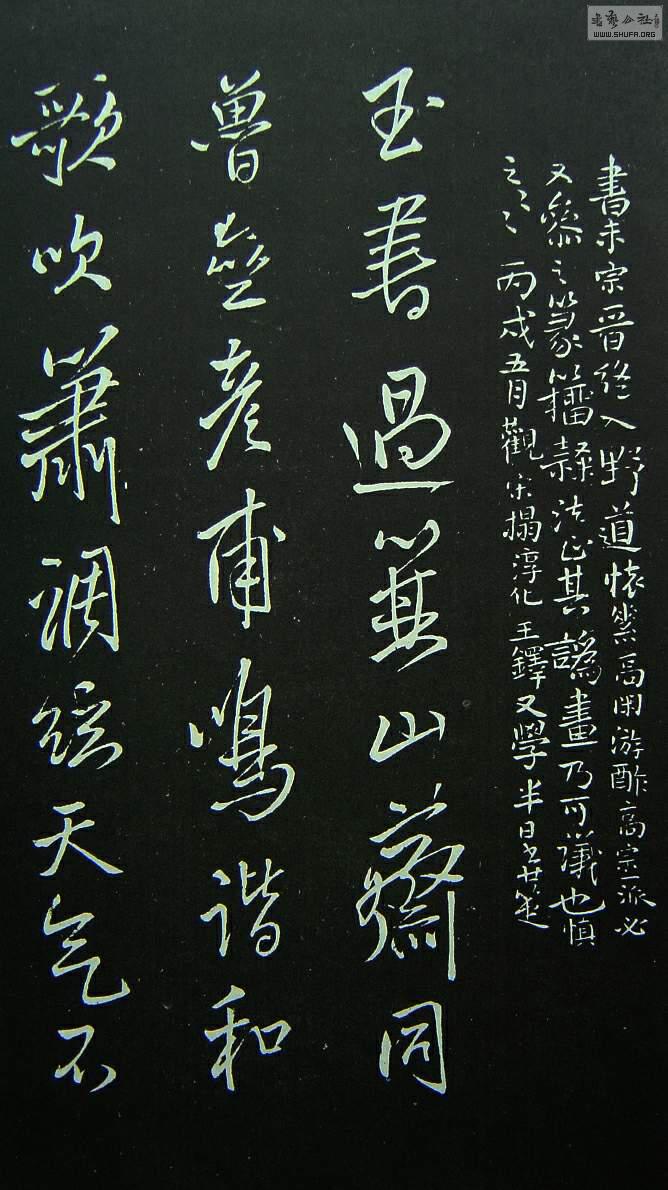 書藝公社
WWW.SHUFA.ORG
書未宗晉終入野道懷素高閑游酢高宗一派必
又參之篆籀隸法正其譌畫乃可議也慎
之〻〻丙戌五月觀宋搨淳化王鐸又學半日書
玉書過蕪山齋同
魯壺彥甫鳴諧和
歌吹簫調弦天气不